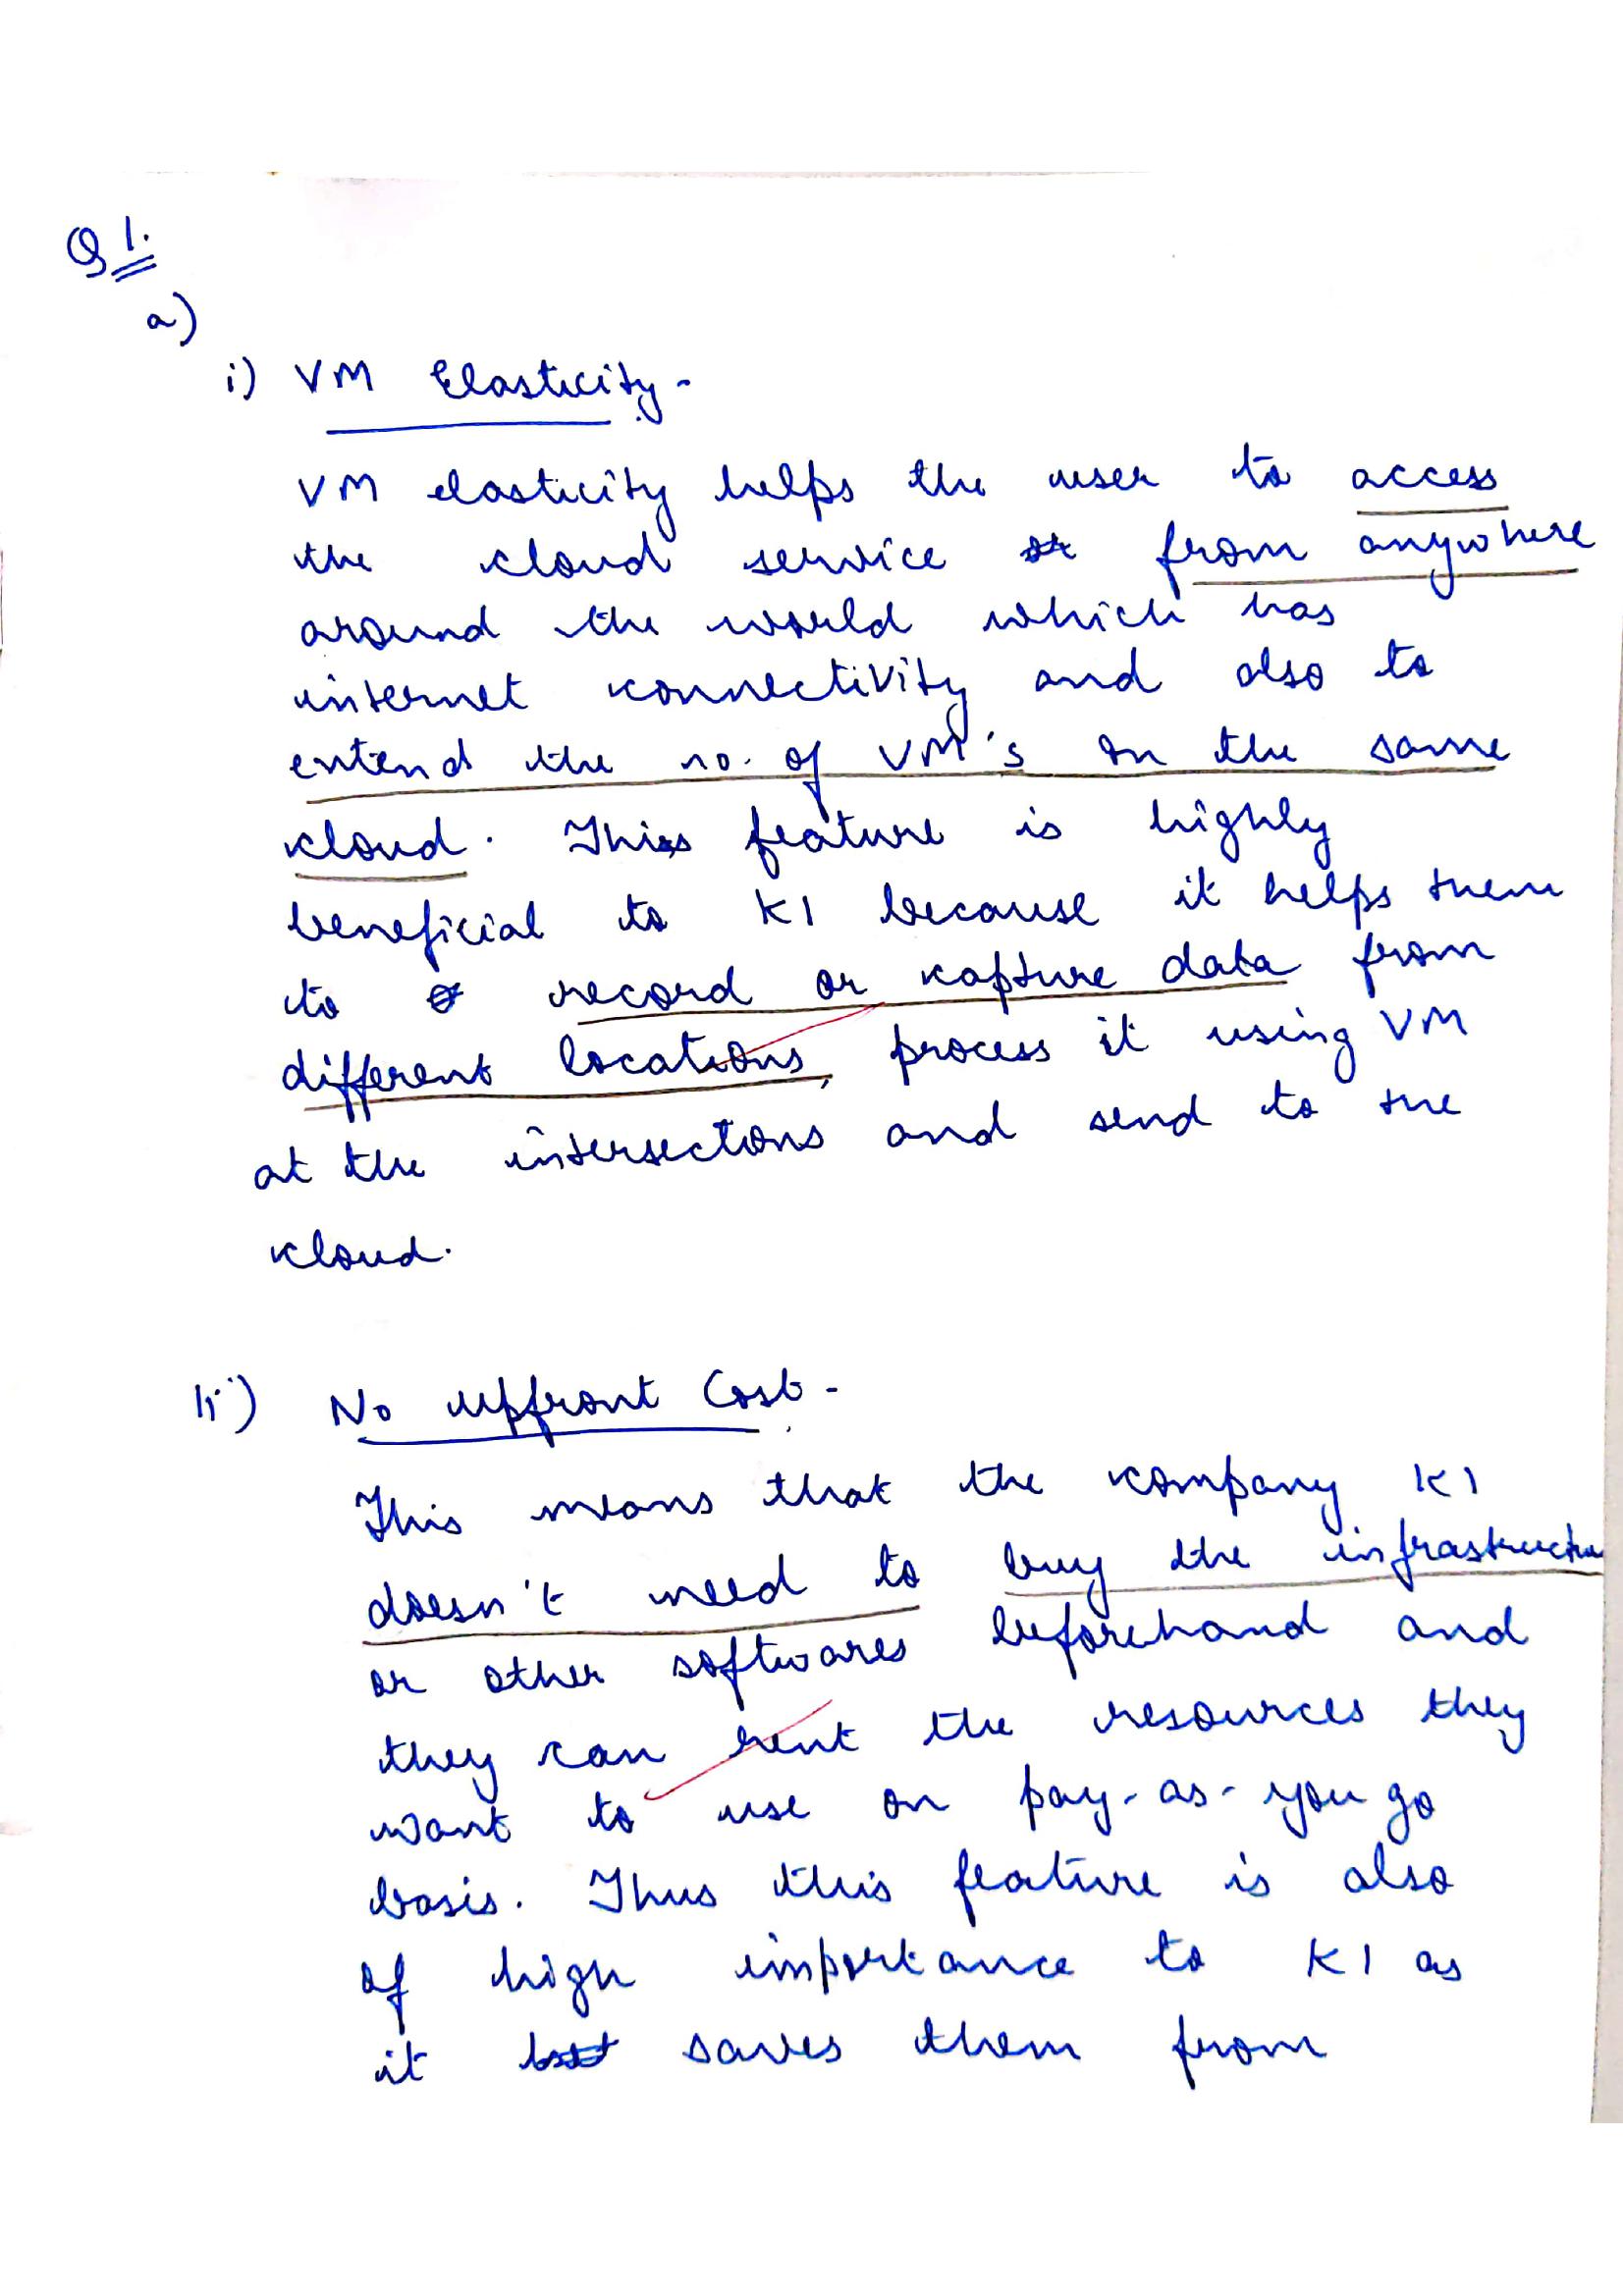 Q 1.
a)
i) VM Elasticity-
VM elasticity helps the user to access
the cloud service from anywhere
around the world which has
internet connectivity and also to
extend the no. of VM's on the same
cloud. This feature is highly
beneficial to K1 because it helps them
to record or capture data from
different locations, process it using VM
at the intersections and send to the
cloud.
ii) No upfront Cost-
This means that the company K1
doesn't need to buy the infrastructure
or other softwares beforehand and
they can rent the resources they
want to use on pay-as-you go
basis. Thus this feature is also
of high importance to K1 as
it saves them from